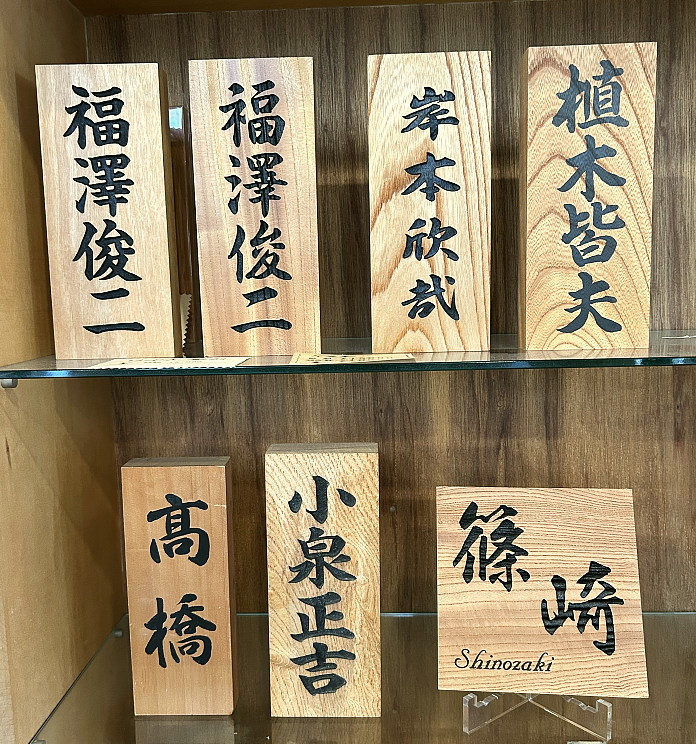 福澤俊二
福澤俊二
岸本欣哉
植木皆夫
髙橋
小泉正吉
篠崎
Shinozaki